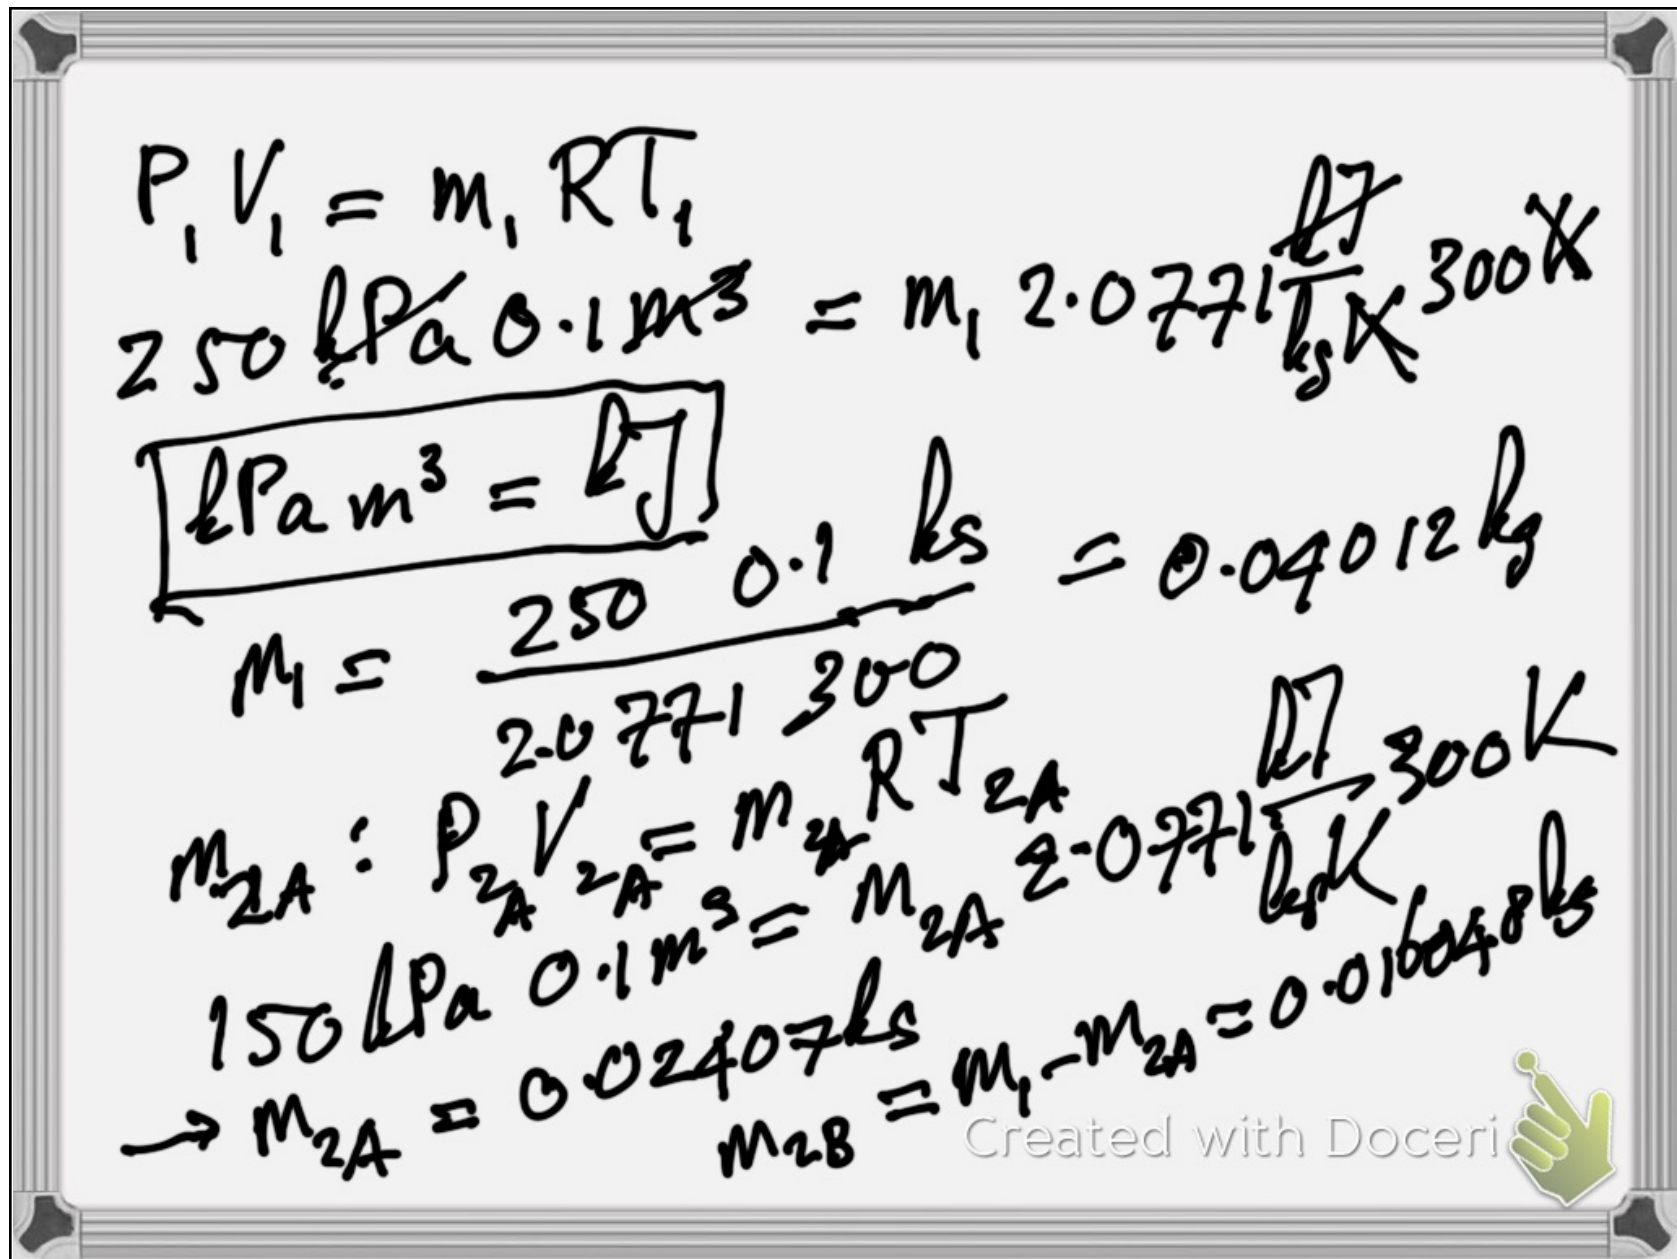 P₁V₁ = m₁ RT₁
250 kPa 0.1 m³ = m₁ 2.0771 kJ/kg K 300 K
kPa m³ = kJ
m₁ = 250 0.1 kg / 2.0771 300 = 0.04012 kg
m₂A : P₂A V₂A = m₂A RT₂A
150 kPa 0.1 m³ = m₂A 2.0771 kJ/kg K 300 K
→ m₂A = 0.02407 kg
m₂B = m₁ - m₂A = 0.016048 kg
Created with Doceri